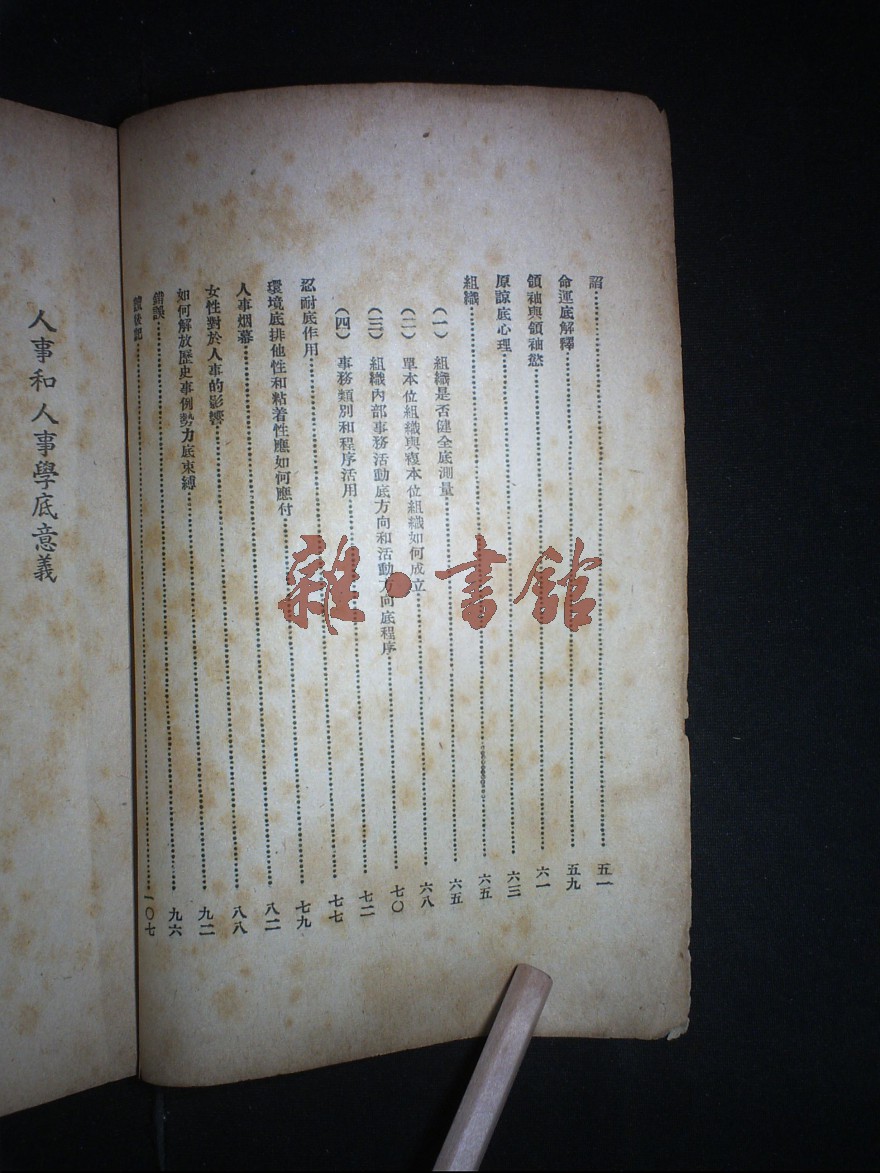 諂……五一
命運底解釋……五九
領袖與領袖慾……六一
原諒底心理……六三
組織……六五
(一) 組織是否健全底測量……六五
(二) 單本位組織與複本位組織如何成立……六八
(三) 組織內部事務活動底方向和活動方向底程序……七〇
(四) 事務類別和程序活用……七二
忍耐底作用……七七
環境底排他性和粘着性應如何應付……七九
人事烟幕……八二
女性對於人事的影響……八八
如何解放歷史事例勢力底束縛……九二
錯誤……九六
……一〇七
人事和人事學底意義
雜·書館